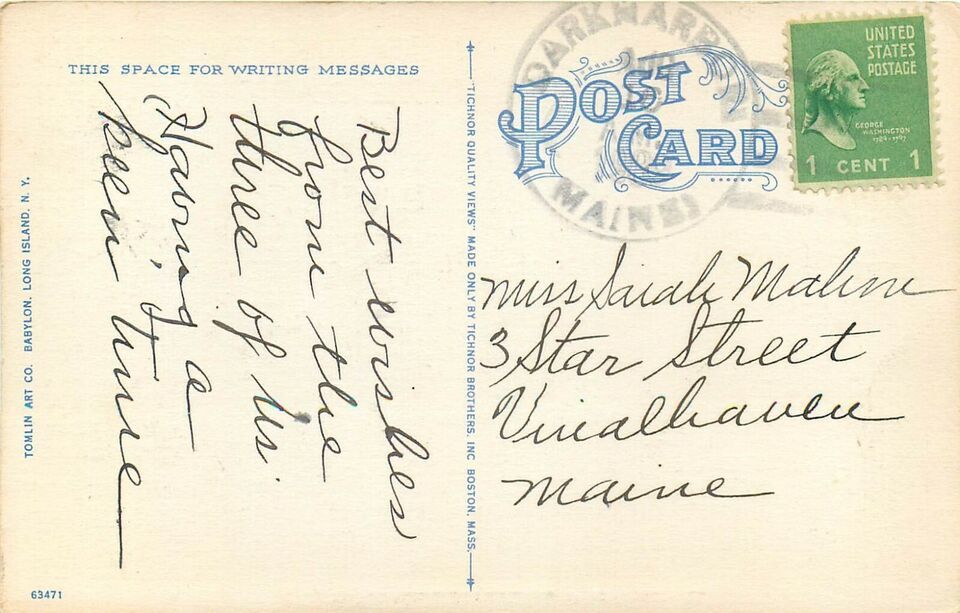 THIS SPACE FOR WRITING MESSAGES
Best wishes
from the
three of us.
Having a
keen time
TOMLIN ART CO. BABYLON, LONG ISLAND, N. Y.
63471
"TICHNOR QUALITY VIEWS" MADE ONLY BY TICHNOR BROTHERS, INC BOSTON, MASS.
POST
CARD
MAINE
UNITED
STATES
POSTAGE
GEORGE
WASHINGTON
1789-1797
1 CENT 1
Miss Sarah
3 Star Street
Vinalhaven
Maine